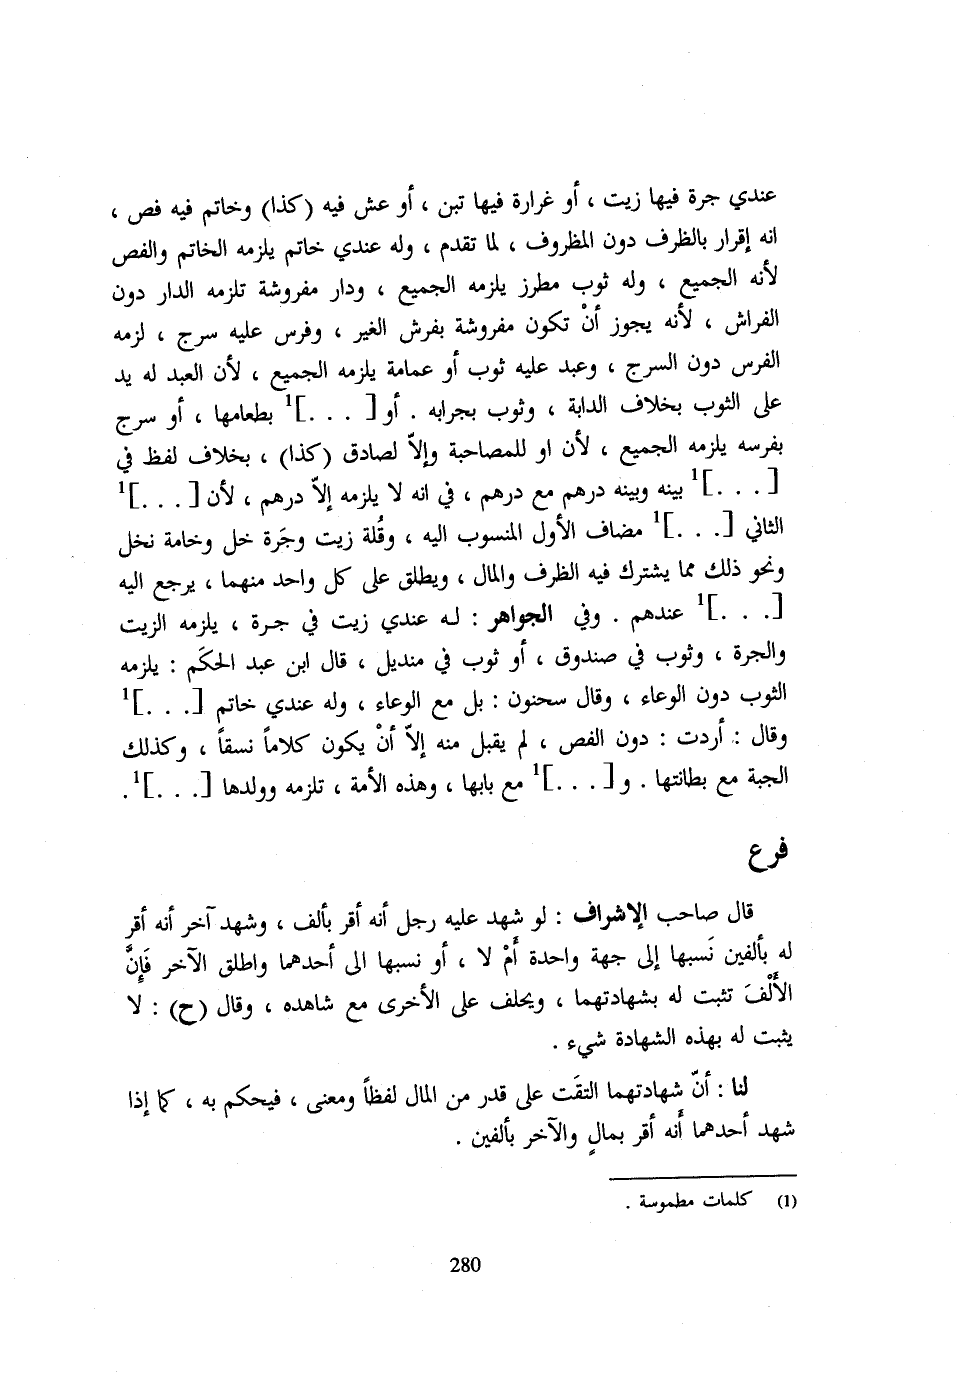 عندي جرة فيها زيت ، أو غرارة فيها تبن ، أو عش فيه (كذا) وخاتم فيه فص ،
انه إقرار بالظرف دون المظروف ، لما تقدم ، وله عندي خاتم يلزمه الخاتم والفص
لأنه الجميع ، وله ثوب مطرز يلزمه الجميع ، ودار مفروشة تلزمه الدار دون
الفراش ، لأنه يجوز أنْ تكون مفروشة بفرش الغير ، وفرس عليه سرج ، لزمه
الفرس دون السرج ، وعبد عليه ثوب أو عمامة يلزمه الجميع ، لأن العبد له يد
على الثوب بخلاف الدابة ، وثوب بجرابه . أو [. . .]1 بطعامها ، أو سرج
بفرسه يلزمه الجميع ، لأن او للمصاحبة وإلاّ لصادق (كذا) ، بخلاف لفظ في
[. . .]1 بينه وبينه درهم مع درهم ، في انه لا يلزمه إلاّ درهم ، لأن [. . .]1
الثاني [. . .]1 مضاف الأول المنسوب اليه ، وقُلة زيت وجَرة خل وخامة نخل
ونحو ذلك مما يشترك فيه الظرف والمال ، ويطلق على كل واحد منهما ، يرجع اليه
[. . .]1 عندهم . وفي الجواهر : له عندي زيت في جرة ، يلزمه الزيت
والجرة ، وثوب في صندوق ، أو ثوب في منديل ، قال ابن عبد الحكَم : يلزمه
الثوب دون الوعاء ، وقال سحنون : بل مع الوعاء ، وله عندي خاتم [. . .]1
وقال : أردت : دون الفص ، لم يقبل منه إلاّ أنْ يكون كلاماً نسقاً ، وكذلك
الجبة مع بطانتها . و [. . .]1 مع بابها ، وهذه الأمة ، تلزمه وولدها [. . .]1 .
فرع
قال صاحب الإشراف : لو شهد عليه رجل أنه أقر بألف ، وشهد آخر أنه أقر
له بألفين نَسبها إلى جهة واحدة أَمْ لا ، أو نسبها الى أحدهما واطلق الآخر فَإِنَّ
الأَلْفَ تثبت له بشهادتهما ، ويحلف على الأخرى مع شاهده ، وقال (ح) : لا
يثبت له بهذه الشهادة شيء .
لنا : أنّ شهادتهما التقَت على قدر من المال لفظاً ومعنى ، فيحكم به ، كما إذا
شهد أحدهما أَنه أقر بمالٍ والآخر بألفين .
(1) كلمات مطموسة .
280